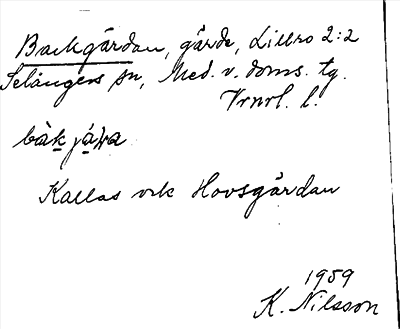 Backgårdan, gärde, Lillro 2:2
Selångers sn, Med. v. doms. tg.
Vrnrl. l.
bàk
Kallas ock Hovsgårdan
1959
K. Nilsson